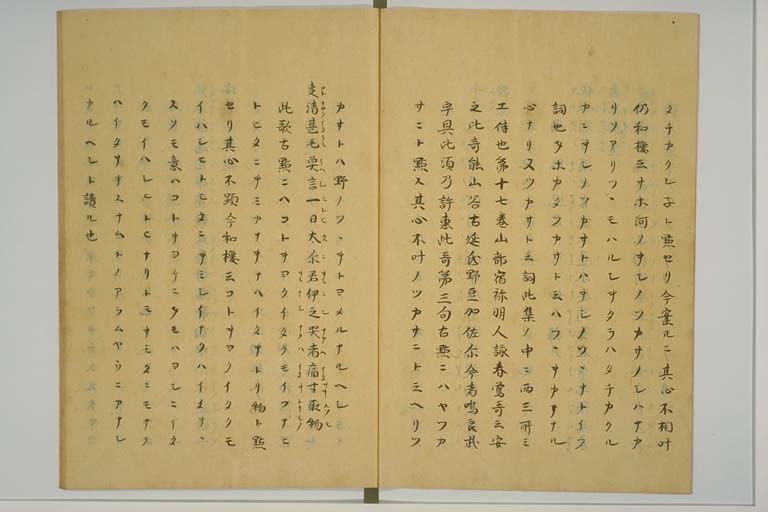 タチカクレ子ト點セリ今案ルニ其心不相叶
仍和換云サホ河ノキシノツカサノシハナカ
リソアリツヽモハルシキタラハタチカクル
カニキシノツカサトハキシノツヽキナトイフ
詞也タホカタツカサトミハツヽキカサナル
心ナリ又ツカサト云詞此集ノ中ニ両三所ミ
エ侍也第十七巻山部宿祢明人詠春鴬哥云安
之比奇能山谷古延弖野豆加佐尓今者鳴良武
宇具比須乃許恵此哥第三句古點ニハヤフカ
サニト點ス其心不叶ノツカサニトミヘリツ
カサトハ野ノツヽサトヨメルナルヘシ
事清甚毛莫言一日太尓君伊之哭者痛寸取物
此歌古點ニハコトキヨクイタクモイフナヒ
トヒタニキミアナナカハイタキトリ物ト點
セリ其心不顕今和換云コトキヨクイタクモ
イハシヒトヒタニキミシイナクハイタキ
スソモ意ハコトキヨケニタモハヨシニイタ
クモイハシヒトヒナリトモキミタニモナク
ハイタキキスナムトノアラムヤウニアナシ
カルヘシト讀ル也